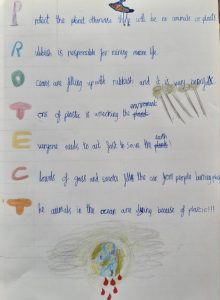 Protect the planet otherwise there will be no animals or plants
Rubbish is responsible for ruining marine life.
Oceans are filling up with rubbish and it is very
Tons of plastic is wrecking the planet environment
Everyone needs to act fast to save the planet! earth
Clouds of gass and smoke fill the air from people burning
The animals in the ocean are dying because of plastic!!!